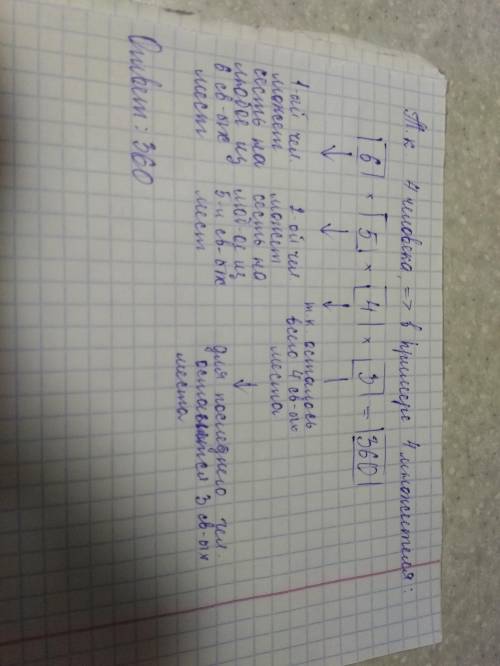 Т.к 4 человека, => в примере 4 множителя:
6 × 5 × 4 × 3 = 360
1-ый чел
может
сесть на
любое из
6 св-ых
мест
2-ой чел
может
сесть на
из
5-и св-ых
мест
т.к. осталось
всего 4 св-ых
места
для последнего чел.
остаётся 3 св-ых
места
Ответ: 360